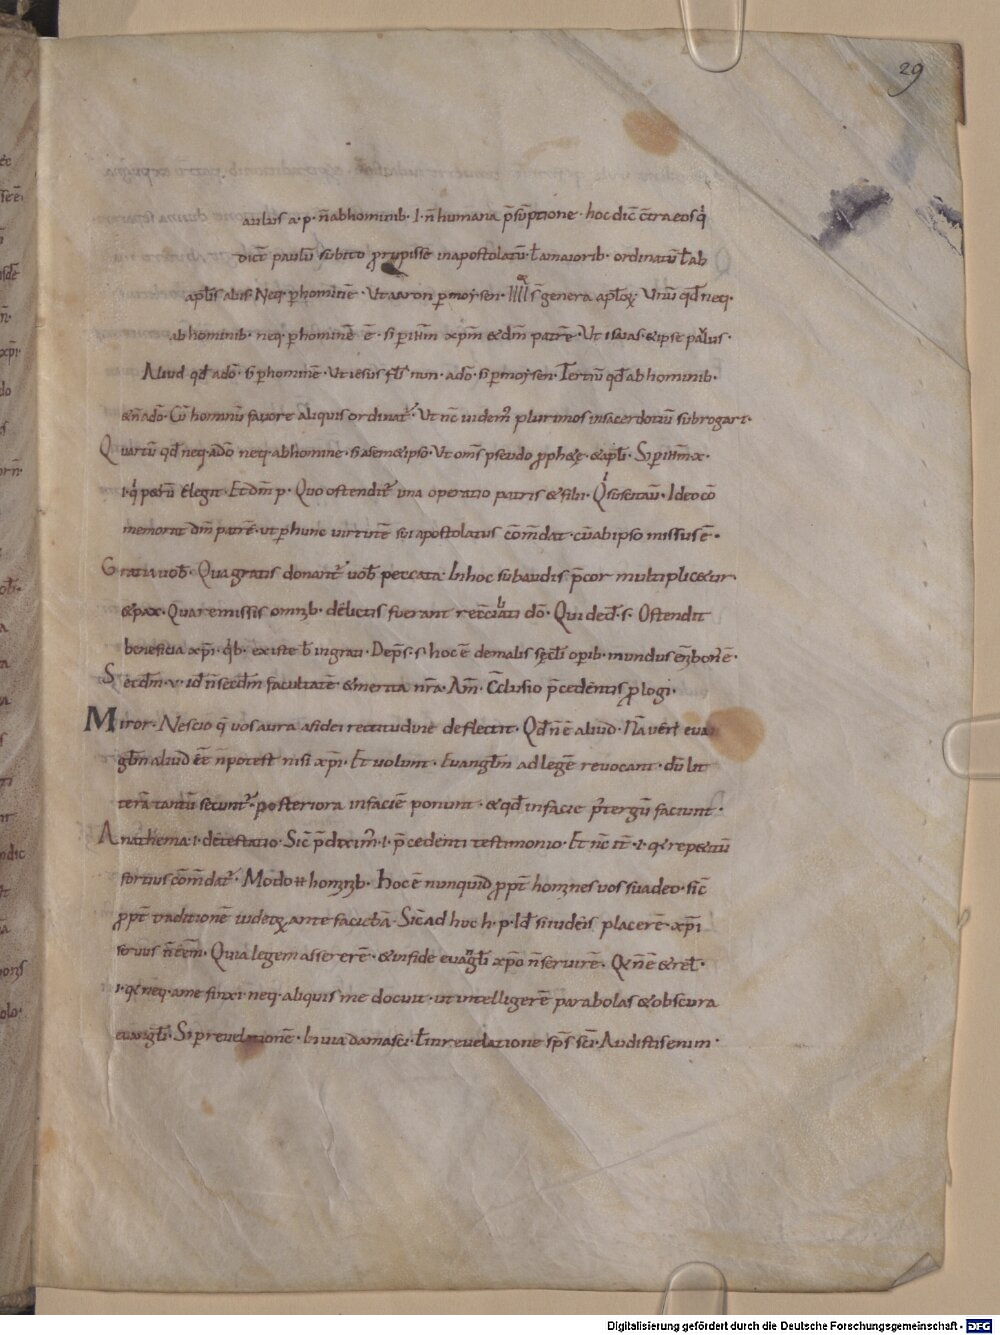 29
aulus a·p· n̄ abhominib· ·l· n̄ humana p̄sūptione · hoc dic̄ c̄tra eos q̇
dic̄t paulū subito prupisse in apostolatū · ł amaiorib· ordinatū ł ab
apl̄is aliis· Neq; p hominē · Ut aaron p moysen · IIII s̄ genera apl̄oꝝ · Unū qđ neq·
ab hominib· neq; p hominē ē · s; p ihm̄ xp̄m & dm̄ patrē · Ut isaias & ipse paulus ·
Aliud qđ a dō · s; p hominē · Ut iesus fił nun · a dō · s; p moysen · Tertiū qđ ab hominib·
& n̄ a dō · Cū hominū favore aliquis ordinat᷒ · Ut nc̄ uidem᷒ plurimos in sacerdotiū subrogari ·
Quartū qđ neq· a dō neq· ab homine · s; a sem& ipso · Ut om̄s pseudo pph&ę · & apl̄i · S; p ihm̄ x·
·i· q̇ petrū elegit · Et dm̄ p· Quo ostendit᷒ una operatio patris & filii · Q̇ suscitau̅ · Ideo cō
memorat dm̄ patrē · ut p hunc uirtutē sui apostolatus cōm̄dat · cū ab ipso missus ē ·
Gratia uob̄ · Qua gratis donant᷒ uob̄ peccata · In hoc subaudis p̄cor multiplic&ur ·
& pax · Qua remissis omīb· delictis fuerant rec̄ciliati dō · Qui ded̄ · s· Ostendit
beneficia xp̄i · q̇b· existe b̄ ingrati · De p̄s· s· hoc ē de malis sęcl̄i opib· mundus eni̅ bon᷒ ē ·
Secdm̄ · v· id n̄ secdm̄ facultatē & merita nr̄a · Am̄ · C̄clusio p̄cedentis prologi ·
Miror · Nescio q̄ uos aura a fidei rectitudine deflectit · Qđ n̄ ē aliud · Nā uerł euan
gl̄m aliud ēē n̄ potest nisi xp̄i · Et volunt · Evangl̄m ad legē revocant · dū lit
terā tantū secunt᷒ · posteriora in faciē ponunt · & qđ in facie p̄tergū faciunt ·
Anathema ·i· detestatio · Sic̄ p̄dixim᷒ ·i· p̄cedenti testimonio · Et nc̄ it̄ ·i· q& rep&itū
fortius cōm̄dat᷒ · Modo · Hoc ē nunquid ppt̄ homines vos suadeo · sic̄
ppt̄ traditionē iudeoꝝ ante faciebā · Sic̄ ad hoc h·p· Id s; iudeis placerē · xp̄i
servus n̄ eēm · Quia legem assererē · & in fide evangl̄i xp̄o n̄ servirē · Q& n̄ ē & rel̄·
·i· q& neq· a me finxi neq· aliquis me docuit · ut intelligerē parabolas & obscura
evangl̄i · S; p revelationē · In via damasci · ł in revelatione sp̄s sc̄i · Audistis enim ·
Digitalisierung gefördert durch die Deutsche Forschungsgemeinschaft - DFG